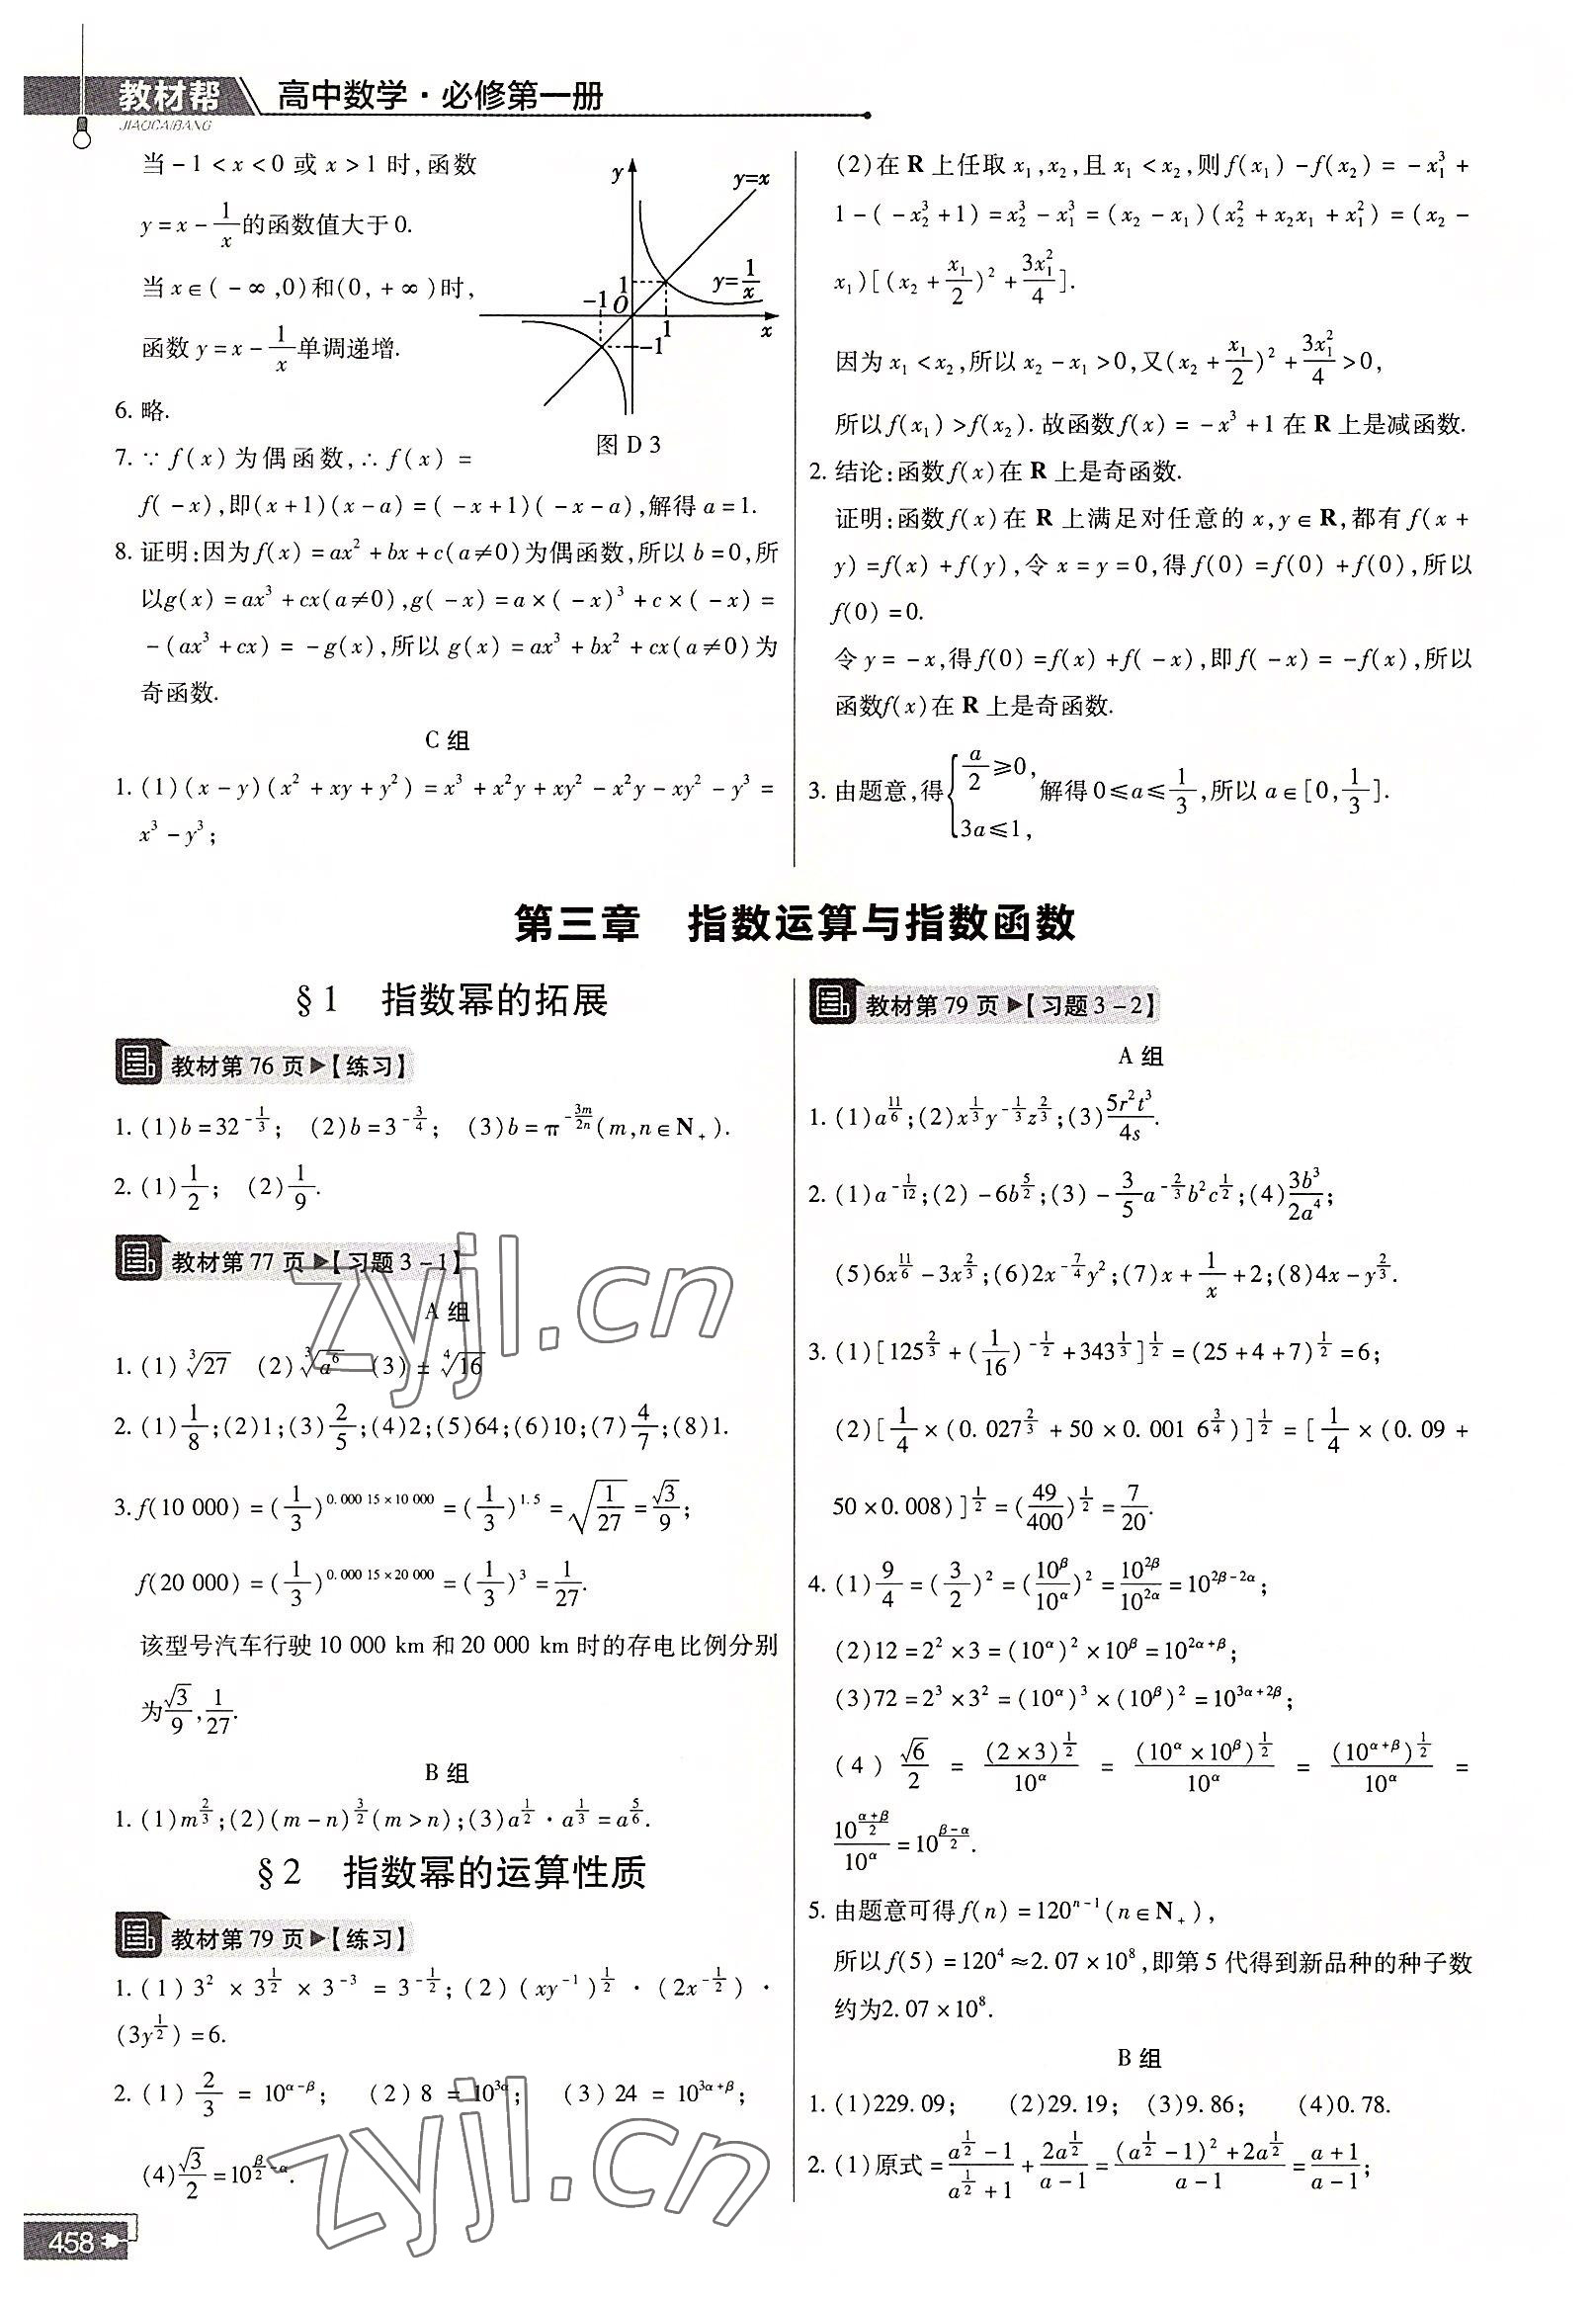 教材帮 高中数学·必修第一册
JIAOCAIBANG
当-1<x<0或x>1时,函数
y=x-1/x的函数值大于0.
当x∈(-∞,0)和(0,+∞)时,
函数y=x-1/x单调递增.
y
y=x
1
y=1/x
-1 O
1 x
-1
图D3
6. 略.
7. ∵f(x)为偶函数,∴f(x)=
f(-x),即(x+1)(x-a)=(-x+1)(-x-a),解得a=1.
8. 证明:因为f(x)=ax²+bx+c(a≠0)为偶函数,所以b=0,所
以g(x)=ax³+cx(a≠0),g(-x)=a×(-x)³+c×(-x)=
-(ax³+cx)=-g(x),所以g(x)=ax³+bx²+cx(a≠0)为
奇函数.
C组
1. (1)(x-y)(x²+xy+y²)=x³+x²y+xy²-x²y-xy²-y³=
x³-y³;
(2)在R上任取x₁,x₂,且x₁<x₂,则f(x₁)-f(x₂)=-x₁³+
1-(-x₂³+1)=x₂³-x₁³=(x₂-x₁)(x₂²+x₂x₁+x₁²)=(x₂-
x₁)[(x₂+x₁/2)²+3x₁²/4].
因为x₁<x₂,所以x₂-x₁>0,又(x₂+x₁/2)²+3x₁²/4>0,
所以f(x₁)>f(x₂).故函数f(x)=-x³+1在R上是减函数.
2. 结论:函数f(x)在R上是奇函数.
证明:函数f(x)在R上满足对任意的x,y∈R,都有f(x+
y)=f(x)+f(y),令x=y=0,得f(0)=f(0)+f(0),所以
f(0)=0.
令y=-x,得f(0)=f(x)+f(-x),即f(-x)=-f(x),所以
函数f(x)在R上是奇函数.
3. 由题意,得{a/2≥0, 3a≤1, 解得0≤a≤1/3,所以a∈[0,1/3].
第三章 指数运算与指数函数
§1 指数幂的拓展
教材第76页▶【练习】
1. (1)b=32^(-1/3); (2)b=3^(-3/4); (3)b=π^(-3m/2n)(m,n∈N₊).
2. (1)1/2; (2)1/9.
教材第77页▶【习题3-1】
A组
1. (1)∛27 (2)∛a⁶ (3)±∜16
2. (1)1/8;(2)1;(3)2/5;(4)2;(5)64;(6)10;(7)4/7;(8)1.
3. f(10 000)=(1/3)^(0.000 15×10 000)=(1/3)^1.5=√(1/27)=√3/9;
f(20 000)=(1/3)^(0.000 15×20 000)=(1/3)³=1/27.
该型号汽车行驶10 000 km和20 000 km时的存电比例分别
为√3/9,1/27.
B组
1. (1)m^(2/3);(2)(m-n)^(3/2)(m>n);(3)a^(1/2)·a^(1/3)=a^(5/6).
§2 指数幂的运算性质
教材第79页▶【练习】
1. (1)3²×3^(1/2)×3^(-3)=3^(-1/2);(2)(xy^(-1))^(1/2)·(2x^(-1/2))·
(3y^(1/2))=6.
2. (1)2/3=10^(α-β); (2)8=10^(3α); (3)24=10^(3α+β);
(4)√3/2=10^(β/2-α).
教材第79页▶【习题3-2】
A组
1. (1)a^(11/6);(2)x^(1/3)y^(-1/3)z^(2/3);(3)5r²t³/4s.
2. (1)a^(-1/12);(2)-6b^(5/2);(3)-3/5a^(-2/3)b²c^(1/2);(4)3b³/2a⁴;
(5)6x^(11/6)-3x^(2/3);(6)2x^(-7/4)y²;(7)x+1/x+2;(8)4x-y^(2/3).
3. (1)[125^(2/3)+(1/16)^(-1/2)+343^(1/3)]^(1/2)=(25+4+7)^(1/2)=6;
(2)[1/4×(0.027^(2/3)+50×0.001 6^(3/4))]^(1/2)=[1/4×(0.09+
50×0.008)]^(1/2)=(49/400)^(1/2)=7/20.
4. (1)9/4=(3/2)²=(10^β/10^α)²=10^(2β)/10^(2α)=10^(2β-2α);
(2)12=2²×3=(10^α)²×10^β=10^(2α+β);
(3)72=2³×3²=(10^α)³×(10^β)²=10^(3α+2β);
(4)√6/2=(2×3)^(1/2)/10^α=(10^α×10^β)^(1/2)/10^α=(10^(α+β))^(1/2)/10^α=
10^((α+β)/2)/10^α=10^((β-α)/2).
5. 由题意可得f(n)=120^(n-1)(n∈N₊),
所以f(5)=120⁴≈2.07×10⁸,即第5代得到新品种的种子数
约为2.07×10⁸.
B组
1. (1)229.09; (2)29.19; (3)9.86; (4)0.78.
2. (1)原式=(a^(1/2)-1)/(a^(1/2)+1)+2a^(1/2)/(a-1)=((a^(1/2)-1)²+2a^(1/2))/(a-1)=(a+1)/(a-1);
458
zyjl.cn
zyjl.cn